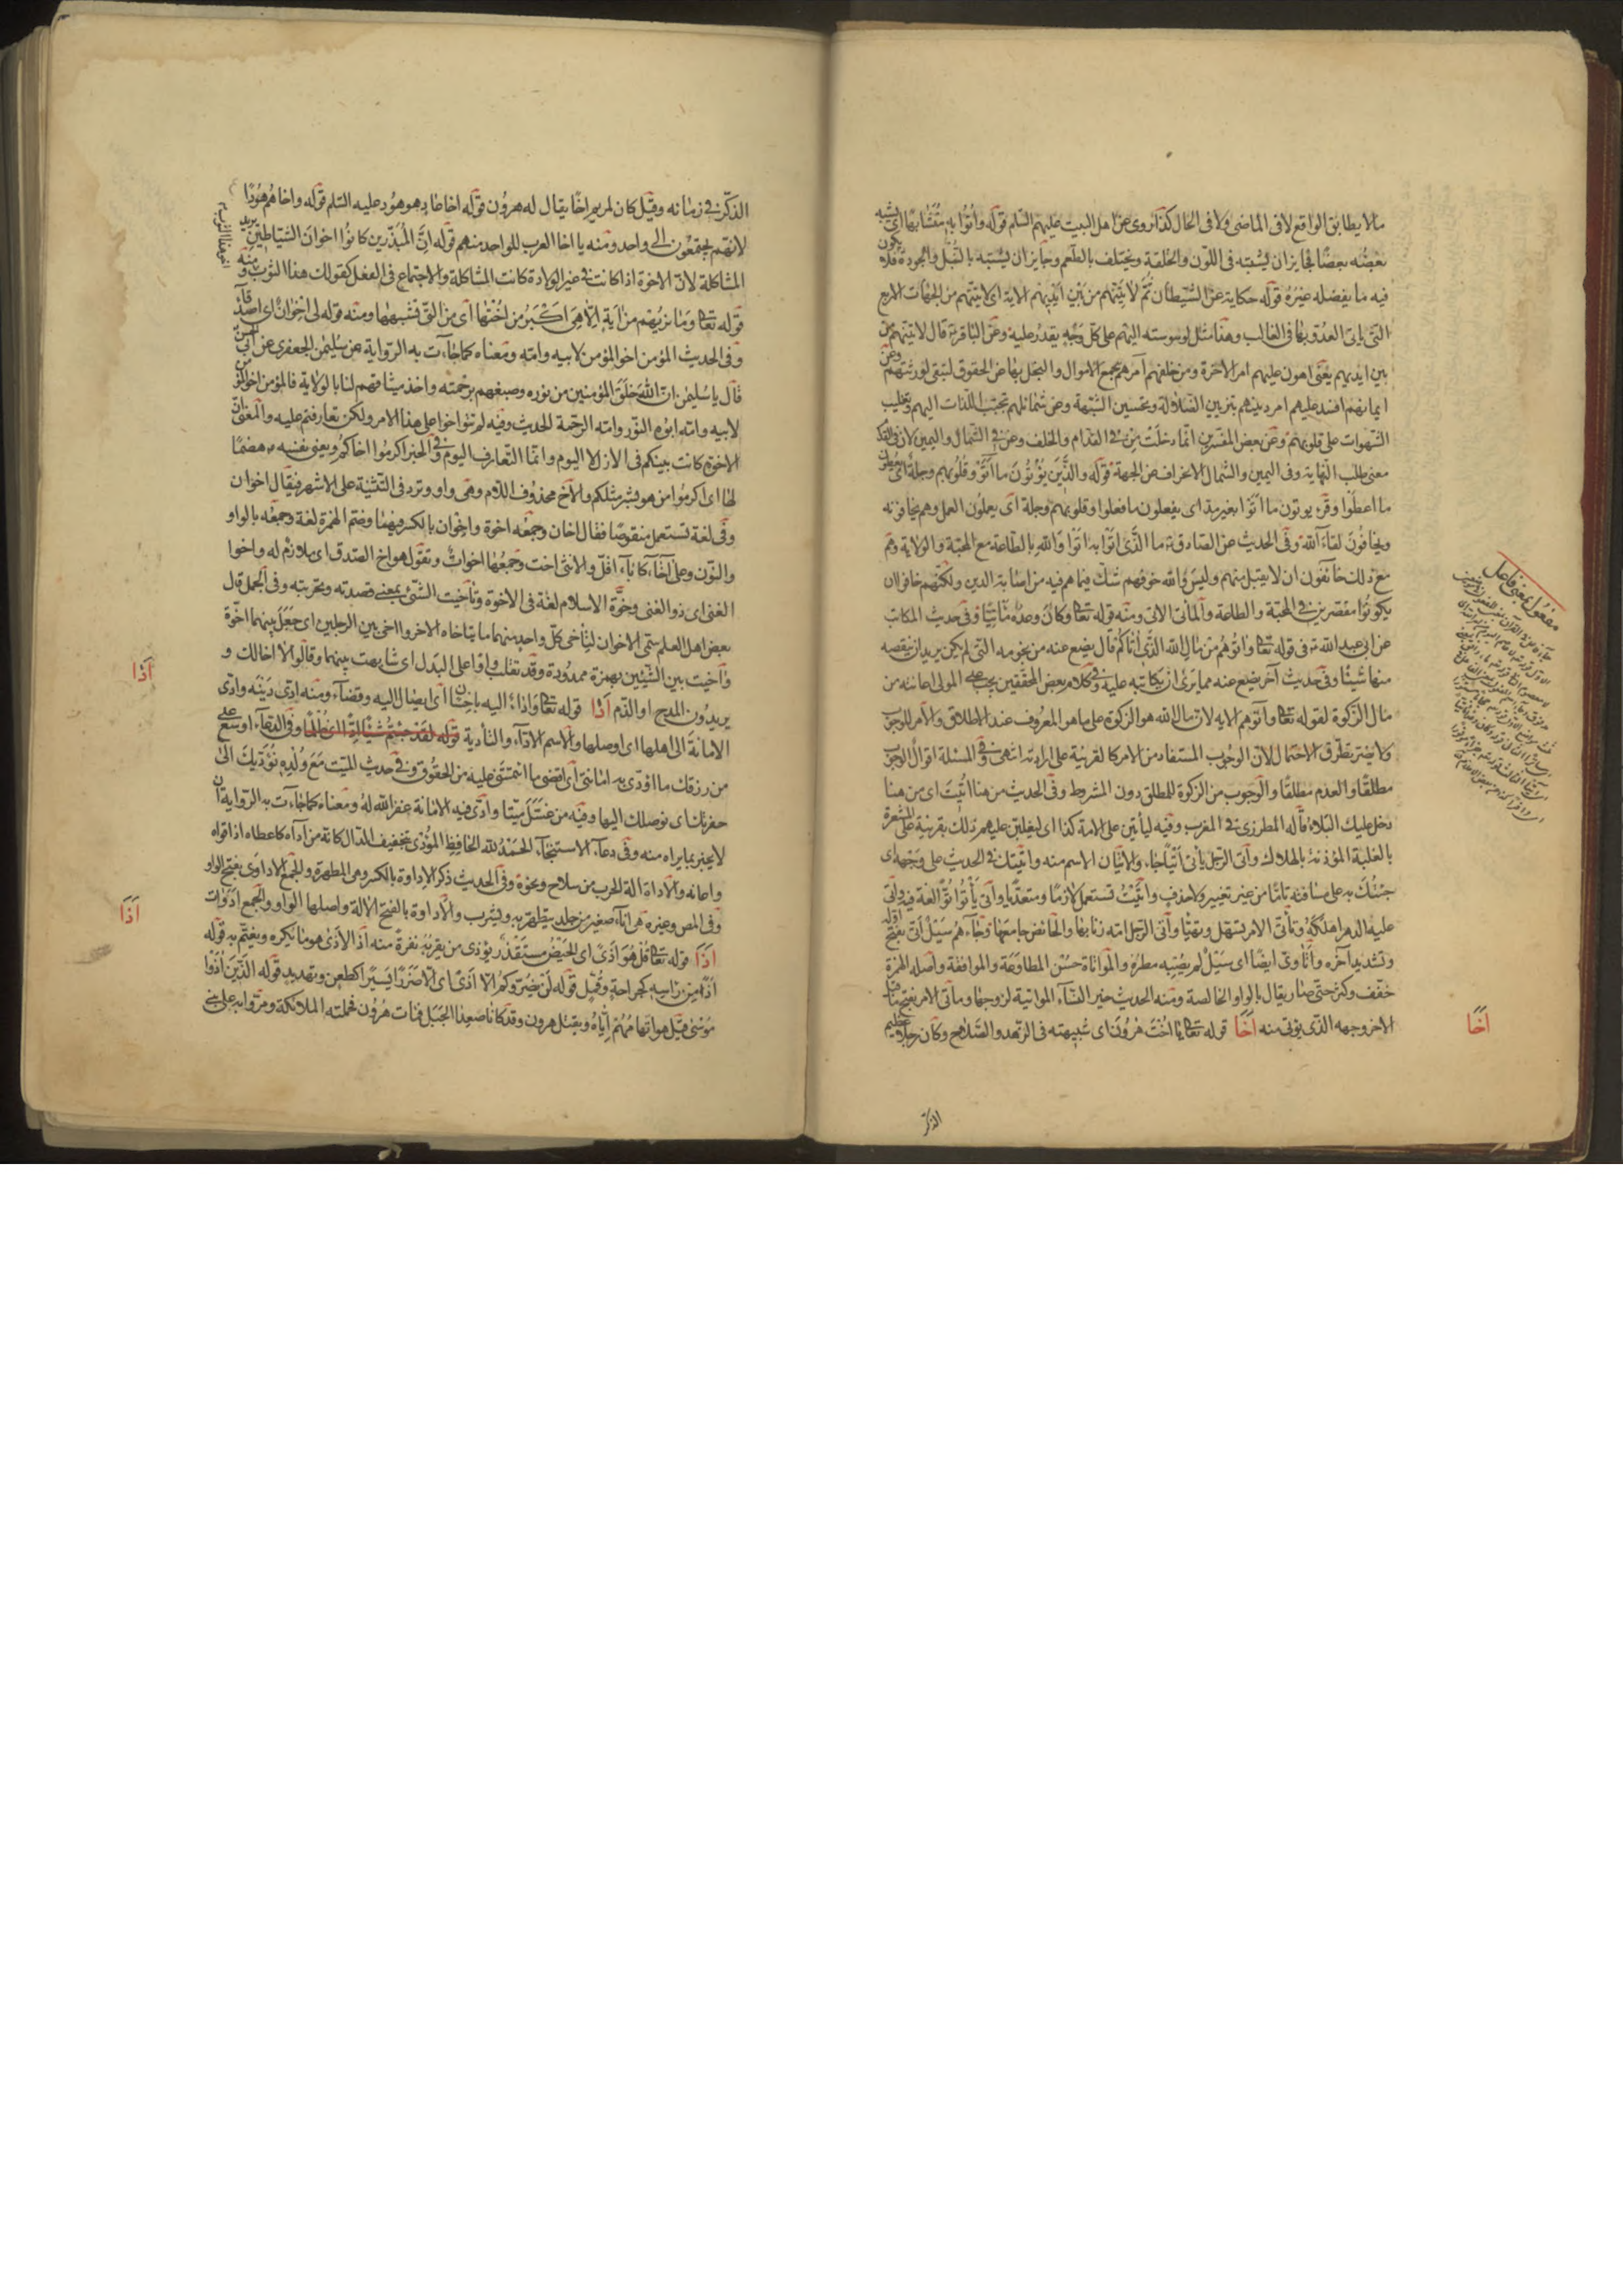 ما لا يطابق الواقع لا فى الماضى ولا فى الحال كذا روى عن اهل البيت عليهم السلم قوله وأتوا به متشابها اى يشبه
بعضه بعضا فجايز ان يشتبه فى اللون والخلقة ويختلف بالطعم وجايز ان يشتبه بالنبل والجودة فلا يكون
فيه ما يفضله غيره قوله حكاية عن الشيطان ثم لآتينهم من بين ايديهم الاية اى لآتينهم من الجهات الاربع
التى ياتى العدو بها فى الغالب وهذا مثل لوسوسته اليهم على كل وجه يقدر عليه وعن الباقر ع قال لآتينهم من
بين ايديهم يعنى اهون عليهم امر الاخرة ومن خلفهم آمرهم بجمع الاموال والبخل بها عن الحقوق لتبقى لورثتهم وعن
ايمانهم افسد عليهم امر دينهم بتزيين الضلالة وتحسين الشبهة وعن شمائلهم بتحبيب اللذات اليهم وتغليب
الشهوات على قلوبهم وعن بعض المفسرين انما دخلت من فى القدام والخلف وعن فى الشمال واليمين لان فى القدام
معنى طلب النهاية وفى اليمين والشمال الانحراف عن الجهة قوله والذين يؤتون ما آتوا وقلوبهم وجلة اى يعطون
ما اعطوا وقرئ يوتون ما اتوا بغير مد اى يفعلون ما فعلوا وقلوبهم وجلة اى يعملون العمل وهم يخافونه
ويخافون لقاء الله وفى الحديث عن الصادق ع ما الذى اتوا به اتوا والله بالطاعة مع المحبة والولاية وهم
مع ذلك خائفون ان لا يقبل منهم وليس والله خوفهم شك فيما هم فيه من اصابة الدين ولكنهم خافوا ان
يكونوا مقصرين فى المحبة والطاعة والمأتى الاتى ومنه قوله تعالى وكان وعده مأتيا وفى حديث المكاتب
عن ابى عبد الله ع فى قوله تعالى واتوهم من مال الله الذى آتاكم قال يضع عنه من نجومه التى لم يكن يريد ان ينقصه
منها شيئا وفى حديث آخر يضع عنه مما يرى ان يكاتبه عليه وفى كلام بعض المحققين يجب على المولى اعانته من
مال الزكوة لقوله تعالى وآتوهم الاية لان مال الله هو الزكوة على ما هو المعروف عند الاطلاق والامر للوجوب
ولا يضر تطرق الاحتمال لان الوجوب المستفاد من الامر كالقرينة على ارادته انتهى وفى المسئلة اقوال الوجوب
مطلقا والعدم مطلقا والوجوب من الزكوة للمطلق دون المشروط وفى الحديث من هنا أتيت اى من هنا
دخل عليك البلاء قاله المطرزى فى المغرب وفيه ليأتين على الامة كذا اى ليغلبن عليهم ذلك بقرينة على المشعرة
بالغلبة المؤذنة بالهلاك وأتى الرجل يأتى أتيا جاء والاتيان الاسم منه واتيتك فى الحديث على وجهه اى
جئتك به على مساقه تاما من غير تغيير ولا حذف وأتيت تستعمل لازما ومتعديا واتى يأتوا اتوا لغة فيه واتى
عليه الدهر اهلكه وتأتى الامر تسهل وتهيا وأتى الرجل امته زنا بها والحائض جامعها وجاءهم سيل أتى بفتح اوله
وتشديد آخره وأتاوى ايضا اى سيل لم يصبه مطره والمواتاة حسن المطاوعة والموافقة واصله الهمزة
خفف وكثر حتى صار يقال بالواو الخالصة ومنه الحديث خير النساء المواتية لزوجها ومأتى الامر بفتح ما قبل
الاخر وجهه الذى يؤتى منه اخا قوله تعالى يا اخت هرون اى شبيهته فى الزهد والصلاح وكان رجلا عظيم
اخا
مفعول بمعنى فاعل
الذكر
الذكر فى زمانه وقيل كان لمريم اخا يقال له هرون قوله اخا عاد هو هود عليه السلم قوله واخاهم هودا
لانهم يجتمعون الى واحد ومنه يا اخا العرب للواحد منهم قوله ان المبذرين كانوا اخوان الشياطين يريد
المشاكلة لان الاخوة اذا كانت فى غير الولادة كانت المشاكلة والاجتماع فى الفعل كقولك هذا الثوب ومنه
اخو هذا الثوب
قوله تعالى وما نريهم من آية الا هى اكبر من اختها اى من التى تشبهها ومنه قوله لى اخوان اى اصدقاء
وفى الحديث المؤمن اخو المؤمن لابيه وامه ومعناه كما جاءت به الرواية عن سليمن الجعفرى عن ابى الحسن
قال يا سليمن ان الله خلق المؤمنين من نوره وصبغهم برحمته واخذ ميثاقهم لنا بالولاية فالمؤمن اخو المؤمن
لابيه وامه ابوه النور وامه الرحمة الحديث وفيه لم تتواخوا على هذا الامر ولكن تعارفتم عليه والمعنى ان
الاخوة كانت بينكم فى الازل لا اليوم وانما التعارف اليوم وفى الخبر اكرموا اخاكم ويعنى نفسه ص هضما
لها اى اكرموا من هو بشر مثلكم والاخ محذوف اللام وهى واو وترد فى التثنية على الاشهر فيقال اخوان
وفى لغة تستعمل منقوصا فقال اخان وجمعه اخوة واخوان بالكسر فيهما وضم الهمزة لغة وجمعه بالواو
والنون وعلى آخاء كآباء اقل والانثى اخت وجمعها اخوات وتقول هو اخ الصدق اى ملازم له واخو
الغنى اى ذو الغنى وخوة الاسلام لغة فى الاخوة وتأخيت الشئ بمعنى قصدته وتحريته وفى المجمل قال
بعض اهل العلم سمى الاخوان لتأخى كل واحد منهما ما يتأخاه الاخر واخى بين الرجلين اى جعل بينهما اخوة
وآخيت بين الشيئين بهمزة ممدودة وقد تقلب واوا على البدل اى شابهت بينهما وقالوا لا اخا لك و
يريدون المدح او الذم اذا قوله تعالى واداء اليه باحسان اى ايصال اليه وقضاء ومنه ادى دينه وادى
اذا
الامانة الى اهلها اى اوصلها والاسم الاداء والتأدية قوله لقد جئتم شيئا ادا اى ظلما وفى الدعاء اوسع على
من رزقك ما اؤدى به امانتى اى اقضى ما ائتمنتنى عليه من الحقوق وفى حديث الميت مع ولده نؤديك الى
حفرتك اى نوصلك اليها وفيه من غسل ميتا وأدى فيه الامانة غفر الله له ومعناه كما جاءت به الرواية ان
لا يخبر بما يراه منه وفى دعاء الاستنجاء الحمد لله الحافظ المؤدى بتخفيف الدال كانه من آداه كاعطاه اذا قواه
واعانه والاداة الة الحرب من سلاح ونحوه وفى الحديث ذكر الاداوة بالكسر وهى المطهرة والجمع الاداوى بفتح الواو
وفى المص وغيره هى اناء صغير من جلد يتطهر به ويشرب والاداوة بالفتح الآلة واصلها الواو والجمع ادوات
اذا
اذا قوله تعالى قل هو اذى اى الحيض مستقذر يؤذى من يقربه نفرة منه اذ الاذى هو ما يكره ويغتم به قوله
اذا من راسه كجراحة وقمل قوله لن يضروكم الا اذى اى الا ضررا يسيرا كطعن وتهديد قوله الذين آذوا
موسى قيل هو اتهامهم اياه بقتل هرون وقد كانا صعدا الجبل فمات هرون فحملته الملائكة ومروا به على بنى